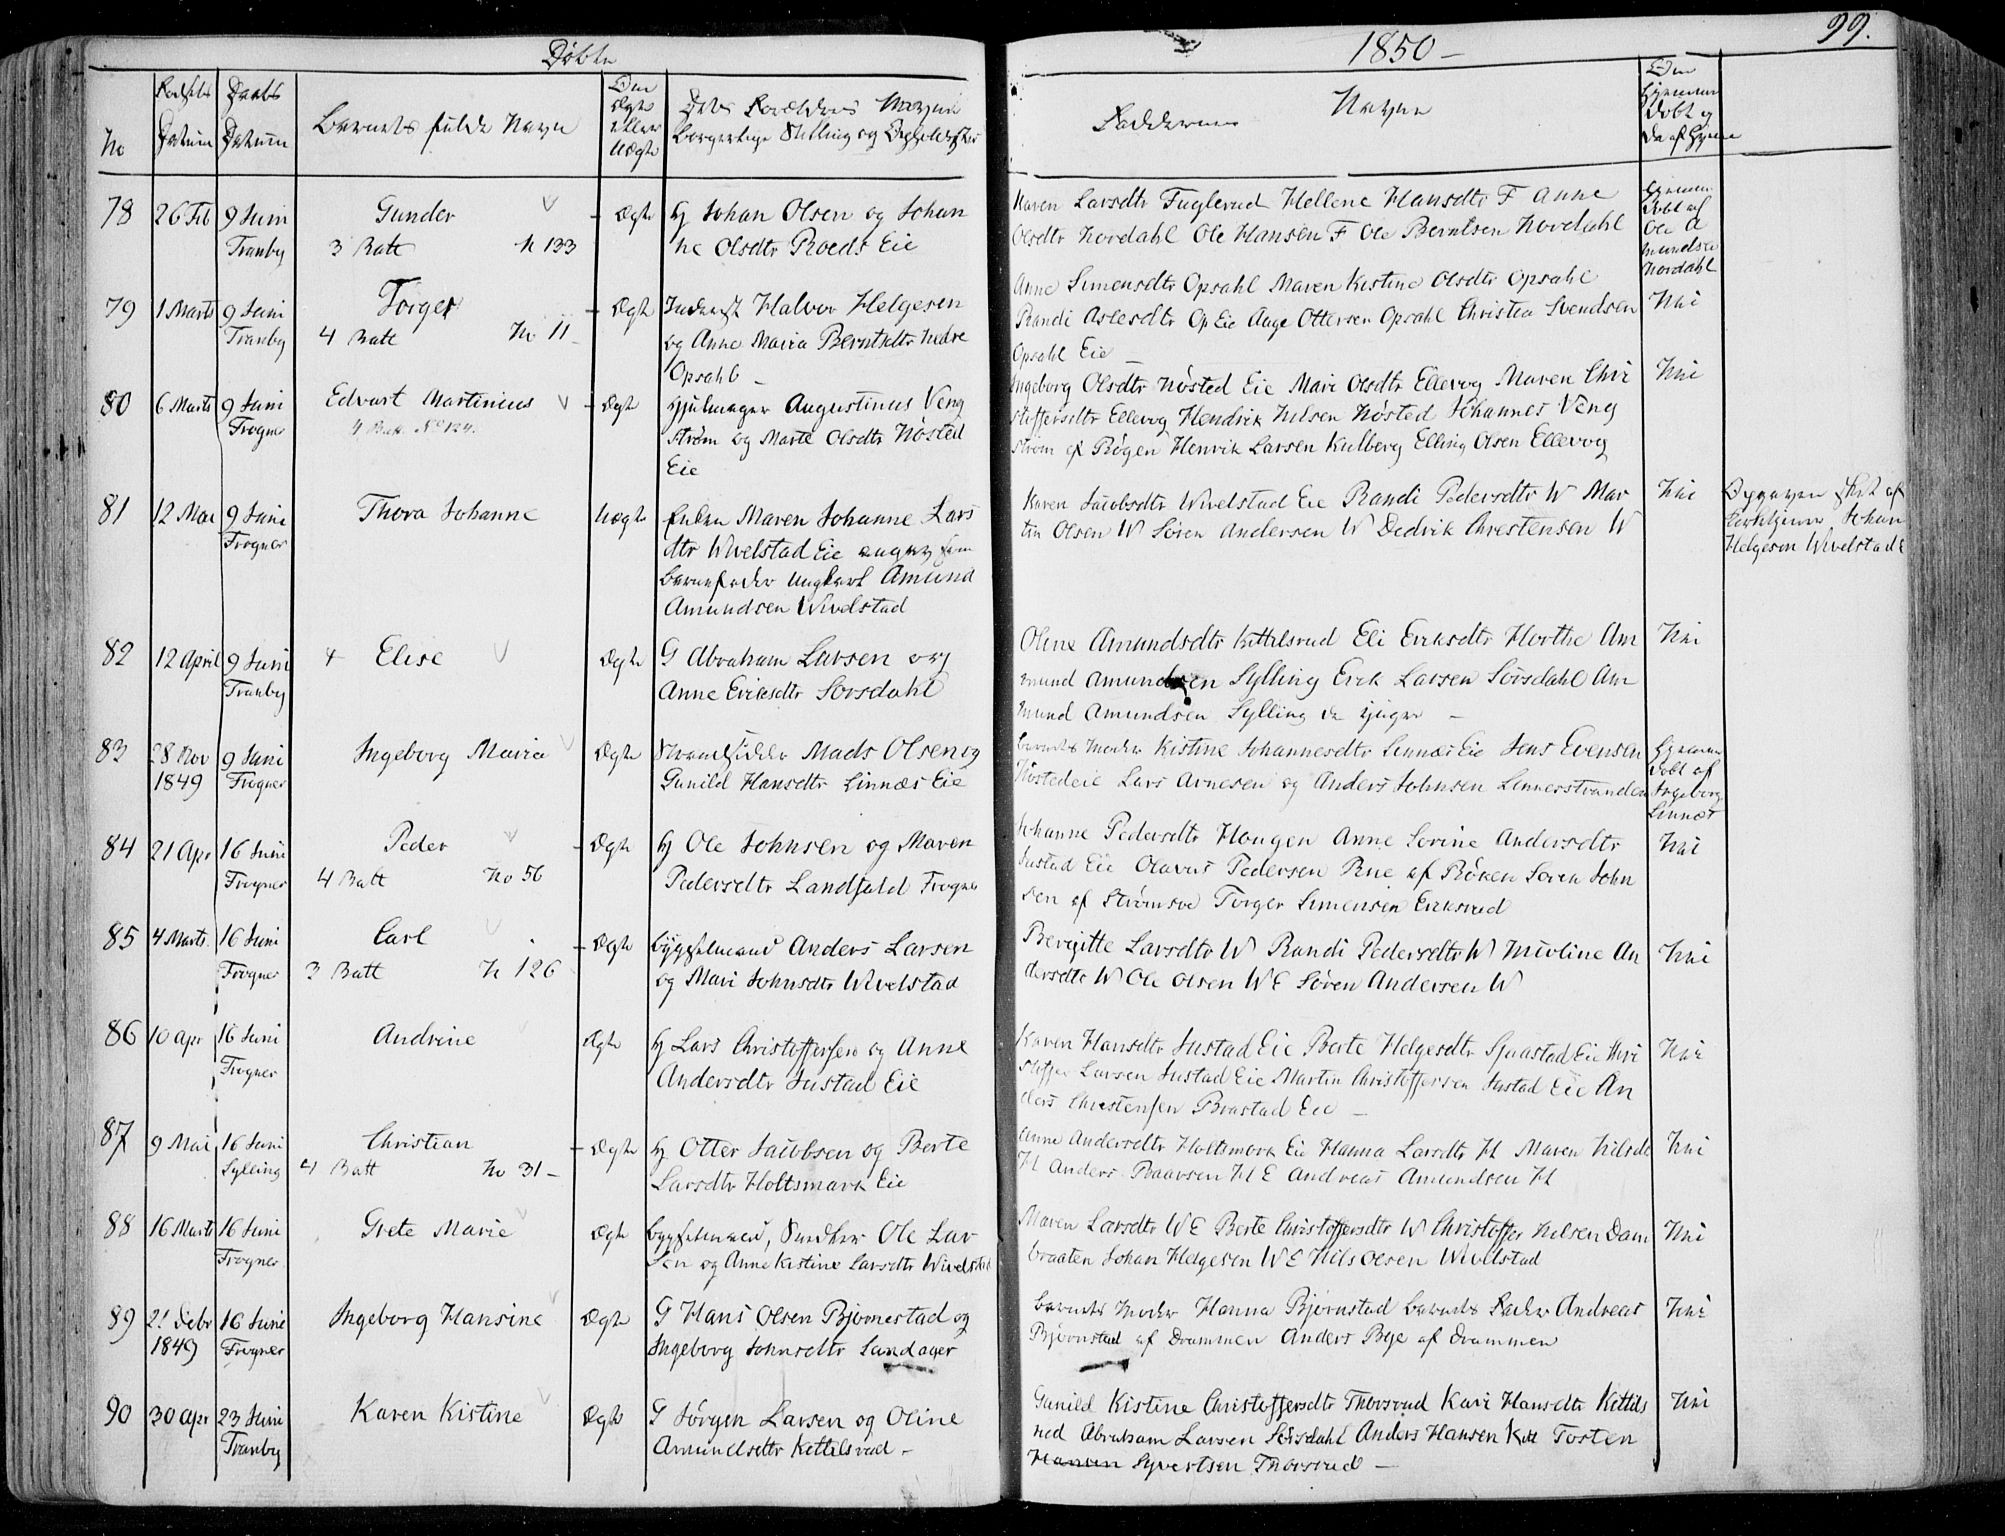 Døbte
1850 –
99.
No
Fødsels Datum
Daabs Datum
Barnets fulde Navn
Om Ægte eller Uægte
Dets Forældres Navne
borgerlige Stilling og Opholdssted
Faddernes Navne
Om hjemmedøbt og
78 26 Feb 9 Juni Tranby
Gunder
3 Batt N 133
Ægte
Hj Johan Olsen og Johan
ne Olsdtr Roeds Eie
Karen Larsdtr Fuglerud Hellene Hansdtr F Anne
Olsdtr Nordahl Ole Hansen F Ole Berntsen Nordahl
hjemmedøbt af Ole Amundsen Nordahl
79 1 Marts 9 Juni Tranby
Torger
4 Batt No 11
Ægte
Inderst Halvor Helgesen
og Anne Maria Berntsdtr nedre
Opsahl –
Anne Simensdtr Opsahl Maren Kistine Olsdtr Opsahl
Randi Aslesdtr Op Eie Aage Ottersen Opsahl Christen Svendsen
Opsahl Eie –
Nei
80 6 Marts 9 Juni Frogner
Edvart Martinius
4 Batt. No 124.
Ægte
Hjulmager Augustinus Veng
strøm og Marte Olsdtr Nøsted
Eie
Ingeborg Olsdtr Nøsted Eie Mari Olsdtr Ellevog Maren Chri
stoffersdtr Ellevog Hendrik Nilsen Nøsted Johannes Veng
strøm af Røgen Henrik Larsen Kulberg Elling Olsen Ellevog
Nei
81 12 Mai 9 Juni Frogner
Thora Johanne
Uægte
Enken Maren Johanne Lars
dtr Wivelstad Eie angav som
Barnefader Ungkarl Amund
Amundsen Wivelstad
Karen Jacobsdtr Wivelstad Eie Randi Pedersdtr W Mar
tin Olsen W Søren Andersen W Dedrik Christensen W
Nei
Opgaven skrt af
Kirketjener Johan
Helgesen Wivelstad E
82 12 April 9 Juni Tranby
4 Elise
Ægte
G Abraham Larsen og
Anne Eriksdtr Sorsdahl
Oline Amundsdtr Kettelsrud Eli Eriksdtr Horthe Am
mund Amundsen Sylling Erik Larsen Sørsdahl Am
mund Amundsen Sylling de yngre –
Nei
83 28 Nov 1849 9 Juni Frogner
Ingeborg Maria
Ægte
Strandsidder Mads Olsen og
Gunild Hansdtr Linnæs Eie
Barnets Moder Kistine Johannesdtr Linnæs Eie Jens Evensen
Nøstedeie Lars Arnesen og Anders Johnsen Linnesstranden
Hjemmedøbt af Ingeborg Linnæs
84 21 Apr 16 Juni Frogner
Peder
4 Batt No 56
Ægte
Hj Ole Johnsen og Maren
Pedersdtr Landfald Frogner
Johanne Pedersdtr Haugen Anne Sorine Andersdtr
Justad Eie Olavus Pedersen Rue af Røken Søren John
sen af Strømsoe Torger Simensen Eriksrud
Nei
85 4 Marts. 16 Juni Frogner
Carl
3 Batt N 126
Ægte
bygselmand Anders Larsen
og Mari Johnsdtr Wivelstad
Beregitte Larsdtr W Randi Pedersdtr W Nicoline An
dersdtr W Ole Olsen W E Søren Andersen W
Nei
86 10 Apr 16 Juni Frogner
Andrine
Ægte
Hj Lars Christoffersen og Anne
Andersdtr Justad Eie
Karen Hansdtr Justad Eie Berte Helgesdtr Sjaastad Eie Chri
stoffer Larsen Justad Eie Martin Christoffersen Justad Eie An
ders Christensen Brastad Eie –
Nei
87 9 Mai 16 Juni Sylling
Christian
4 Batt No 31 –
Ægte
Hj Otter Jacobsen og Berte
Larsdtr Holtsmark Eie
Anne Andersdtr Holtsmark Eie Hanna Larsdtr H Maren Nilsdtr
H Anders Paavsen H E Andreas Amundsen H
Nei
88 16 Marts 16 Juni Frogner
Grete Marie
Ægte
bygselmand, Snedker Ole Lar
sen og Anne Kistine Larsdtr Wivelstad
Maren Larsdtr W E Berte Christoffersdtr W Christoffer Nilsen Dam
braaten Johan Helgesen W E Nils Olsen Wivelstad
Nei
89 21 Debr 1849 16 Juni Frogner
Ingeborg Hansine
Ægte
G Hans Olsen Bjørnestad og
Ingeborg Johnsdtr Landager
Barnets Moder Hanna Bjørnstad Barnets Fader Andreas
Bjørnstad af Drammen Anders Bye af Drammen
Nei
90 30 Apr 23 Juni Tranby
Karen Kistine
Ægte
G Jørgen Larsen og Oline
Amundsdtr Kettelsrud –
Gunild Kistine Christoffersdtr Thorsrud Kari Hansdtr Kettels
rud Abraham Larsen Sørsdahl Anders Hansen Kett Tosten
Hansen Syvertsen Thorsrud –
Nei